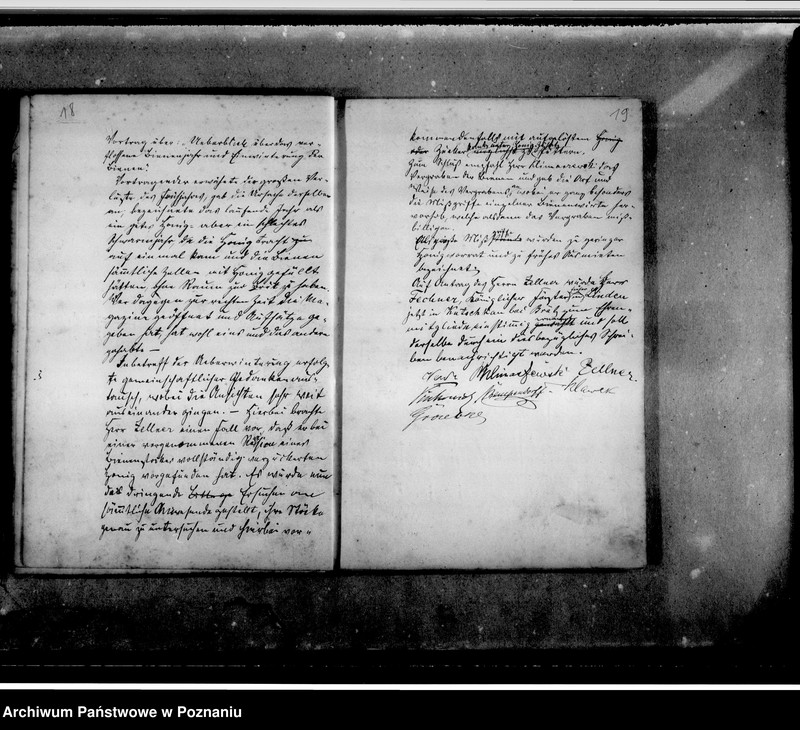 18
Vortrag über: Ueberblick über das ver-
flossene Bienenjahr und Einwinterung der
Bienen.
Vortragender erwähnte die großen Ver-
luste des Frühjahrs, gab die Ursache derselben
an, bezeichnete das laufende Jahr als
ein gutes Honig- aber ein schlechtes
Schwarmjahr, da die Honigtracht
auf einmal kam und die Bienen
sämmtliche Zellen mit Honig gefüllt
hätten, ohne Raum zur Brut zu haben.
Wer dagegen zur rechten Zeit die Ma-
gazine geöffnet und Aufsätze ge-
geben hat, hat wohl eins und das andere
gehabt. —
In betreff der Ueberwinterung erfolg-
te gemeinschaftlicher Gedankenaus-
tausch, wobei die Ansichten sehr weit
auseinander gingen. — Hierbei brachte
Herr Zellner einen Fall vor, daß er bei
einer vorgenommenen Revision eines
Bienenstockes vollständig verzuckerten
Honig vorgefunden hat. Es wurde nun
das dringende Ersuchen an
sämmtliche Anwesende gestellt, ihre Stöcke
genau zu untersuchen und hierbei vor-
19
kommendenfalls mit aufgelösten Honig
oder Zucker zu füttern.
Zum Schluß empfahl Herr Klimaszewski das
Vergraben der Bienen und gab die Art und
Weise des Vergrabens, wobei er ganz besonders
die Mißgriffe einzelner Bienenwirte her-
vorhob, welche alsdann das Vergraben miß-
billigen.
Als Mißgriffe wurden zu geringer
Honigvorrat und zu frühes Ausmieten
bezeichnet.
Auf Antrag des Herrn Zellner wurde Herr
Fechner, Königlicher Förster aus Linden
jetzt in bei Grätz zum Ehren-
mitgliede einstimmig ernannt und soll
derselbe durch ein diesbezügliches Schrei-
ben benachrichtigt werden.
Klimaszewski Zellner.